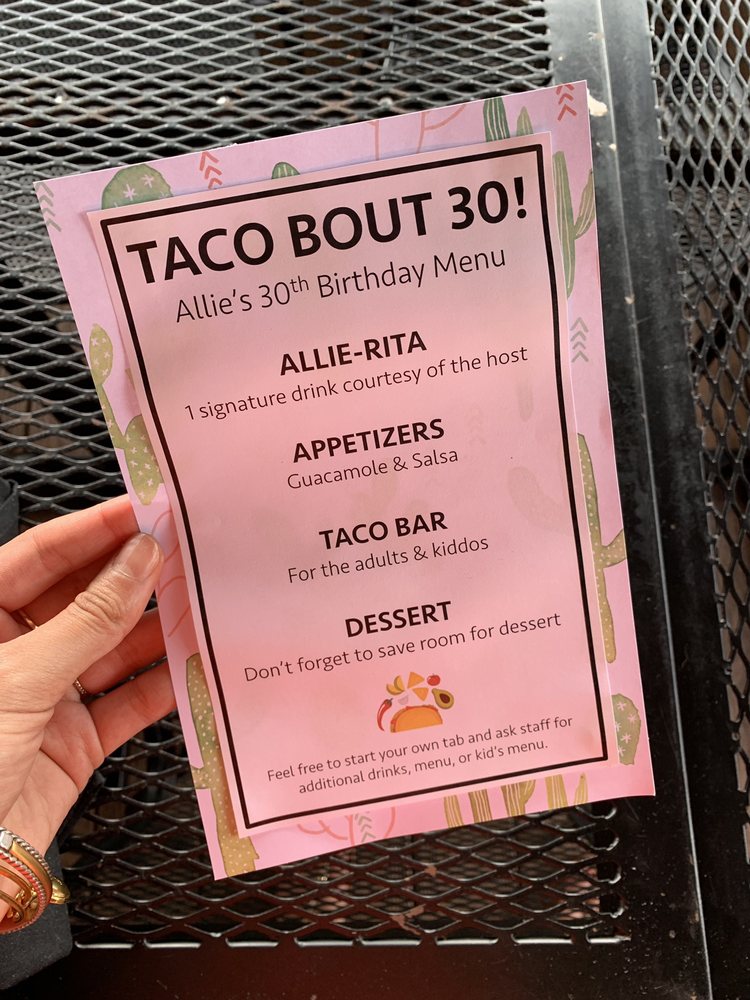 TACO BOUT 30!
Allie's 30th Birthday Menu
ALLIE-RITA
1 signature drink courtesy of the host
APPETIZERS
Guacamole & Salsa
TACO BAR
For the adults & kiddos
DESSERT
Don't forget to save room for dessert
Feel free to start your own tab and ask staff for
additional drinks, menu, or kid's menu.